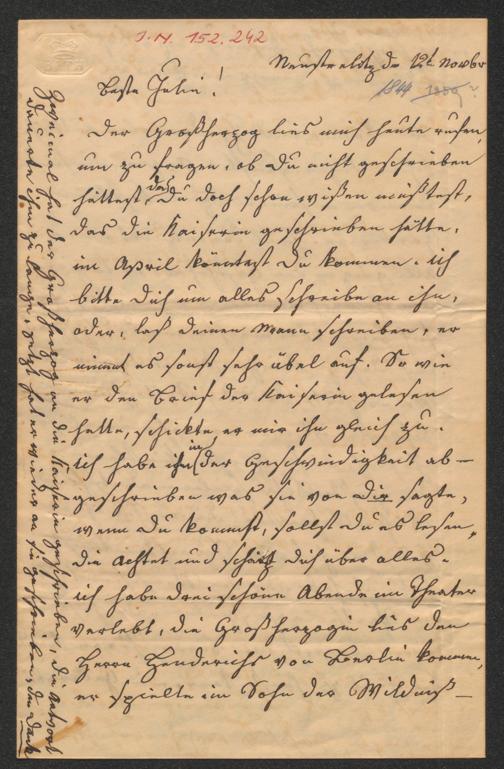 J.N. 152.242
Neustrelitz d 12t Novbr
1844 1889?
Beste Julie!
Der Großherzog lies mich heute rufen,
um zu fragen, ob Du nicht geschrieben
hättest, da Du doch schon wißen müßtest,
das die Kaiserin geschrieben hätte,
im April könntest Du kommen. ich
bitte Dich um alles schreibe an ihn,
oder, laß deinen Mann schreiben, er
nimmt es sonst sehr übel auf. So wie
er den Brief der Kaiserin gelesen
hatte, schickte er mir ihn gleich zu.
ich habe ihn in der Geschwindigkeit ab-
geschrieben was sie von Dir sagte,
wenn Du kommst, sollst Du es lesen,
die achtet und schätzt dich über alles.
ich habe drei schöne Abende im Theater
verlebt, die Großherzogin lies den
Herrn Henderichs von Berlin kommen,
er spielte im Sohn der Wildniß-
Zweimal hat der Großherzog an die Kaiserin geschrieben, die Antwort
dauerte ihm zu lange, jetzt hat er wieder an sie geschrieben, den Dank